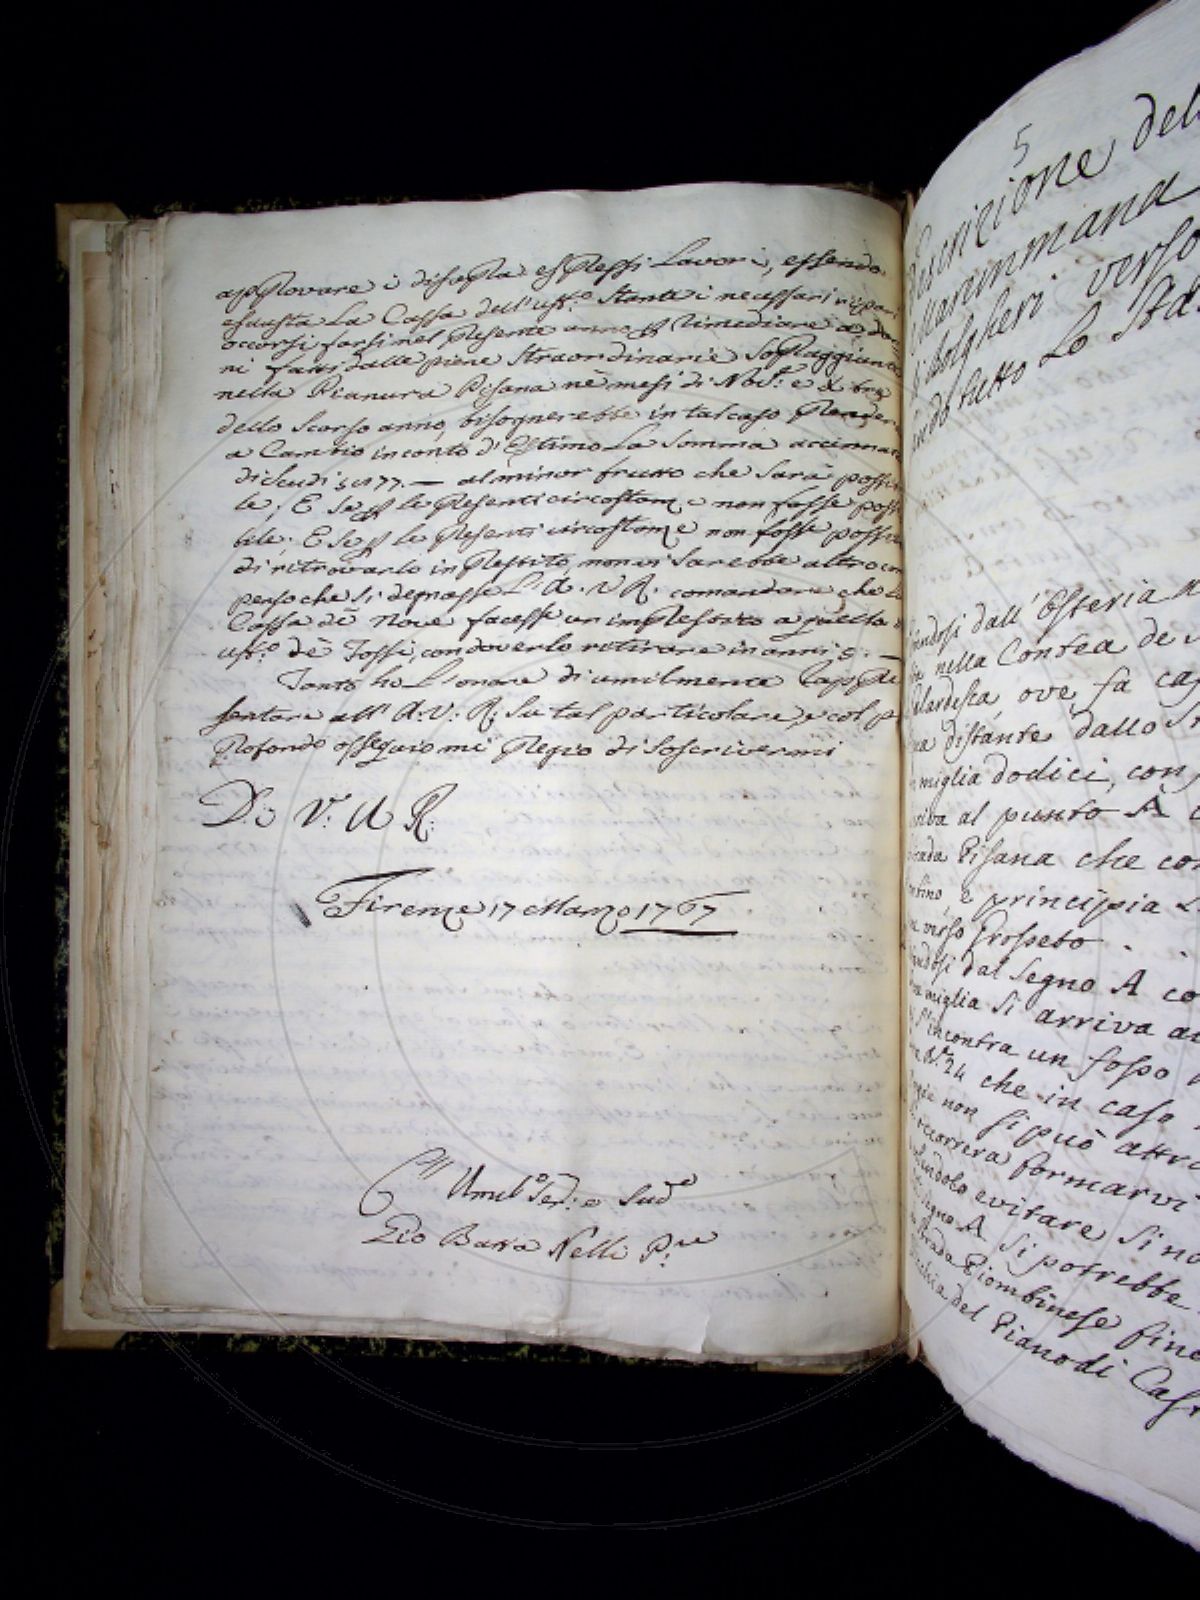 approvare i disopra espressi Lavori, essendo
esausta La Cassa dell'uff.o stante i necessari ripari
occorsi farsi nel presente anno p rimediare a dan
ni fatti dalle piene straordinarie sopraggiunte
nella Pianura Pisana nè mesi di Nov.e e Xbre
dello scorso anno, bisognerebbe in tal caso prender
a Cambio in conto d'Estimo La Somma accennata
di Scudi 5177. — al minor frutto che Sarà possi
le; E se p le presenti circostanze non fosse poss
bile. E se p le presenti circostanze non fosse possi
di ritrovarlo in prestito, non vi sarebbe altro com
penso che si degnasse L'A. V. R. comandare che La
Cassa dè Nove facesse un imprestito a questo
uff.o dè Fossi, con doverlo ritirare in anni 5. —
Tanto ho L'onore di umilmente rappre
sentare all' A: V: R: su tal particolare, e col p
profondo ossequio mi pregio di soscrivermi
D: V: A R:
Firenze 17 Marzo 1767
Um.o Ser: e Sud.o
Pio Barra Nelli P.re
5
Descrizione del
Maremmana
di Bolgheri verso
indo tutto Lo Sta
endosi dall'Osteria
nella Contea de
Gherardesca, ove fa cap
ma distante dallo
miglia dodici, con
arriva al punto A
strada Pisana che con
e principia
verso Grosseto
endosi dal segno A co
miglia si arriva
s'incontra un fosso
N.o 24 che in caso
non si può attra
occorrera formarvi
volendolo evitare si no
segno A si potrebbe
strada Piombinese fino
del Piano di Cas